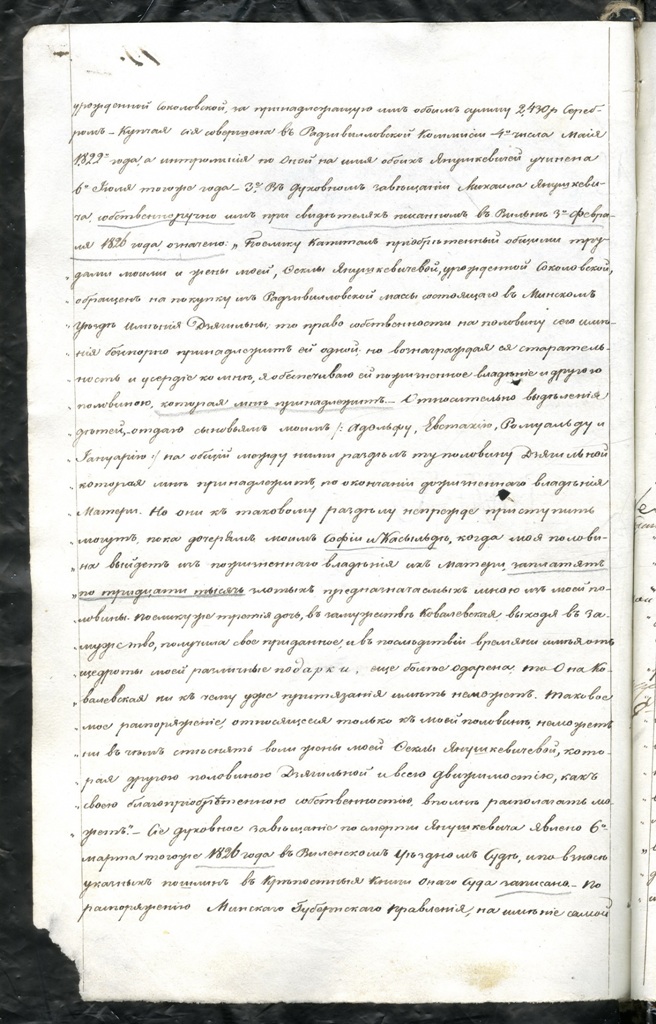 урожденной Соколовской, за принадлежащую имъ обоимъ сумму 2,430 р Сереб-
ромъ – Купчая сія совершена въ Радзивилловской Коммисіи 4го числа Маія
1822го года, а интромисія по оной на имя обоихъ Янушкевичей учинена
6го Іюля тогоже года – 3е Въ духовномъ завѣщаніи Михаила Янушкеви-
ча, собственноручно имъ при свидѣтеляхъ писанномъ въ Вильнѣ 3го Февра-
ля 1826 года, означено: „Поелику Капиталъ пріобрѣтенный общими тру-
„дами моими и жены моей, Ѳеклы Янушкевичевой, урожденной Соколовской,
„обращенъ на покупку изъ Радзивилловской массы состоящаго въ Минскомъ
„Уѣздѣ Имѣнія Дзягильны, то право собственности на половину сего имѣ-
„нія безспорно принадлежитъ ей одной, но вознаграждая ея старатель-
„ность и усердіе ко мнѣ, я обезпечиваю ей пожизненное владѣніе и другою
„половиною, которая мнѣ принадлежитъ. – Относительно выдѣленія
„дѣтей, – отдаю сыновьямъ моимъ /: Адольфу, Евстахію, Ромуальду и
„Януарію :/ на общій между ними раздѣлъ ту половину Дзягильной
„которая мнѣ принадлежитъ, по окончаніи дожизненнаго владѣнія
„Матери. Но они къ таковому раздѣлу непрежде приступить
„могутъ, пока дочерямъ моимъ Софіи и Касыльдѣ, когда моя полови-
„на выйдетъ изъ пожизненнаго владѣнія ихъ Матери, заплатятъ
„по тридцати тысячь злотыхъ предназначаемыхъ мною изъ моей по-
„ловины. Поелику же третія дочь, въ замужествѣ Ковалевская, выходя въ за-
„мужство, получила свое приданное, и въ послѣдствіи времяни имѣя отъ
„щедроты моей различные подарки, еще болѣе одарена, то Она Ко-
„валевская ни къ чему уже притязанія имѣть неможетъ. Таковое
„мое распоряженіе, относящееся только къ моей половинѣ, неможетъ
„ни въ чемъ стѣснять воли жены моей Ѳеклы Янушкевичевой, кото-
„рая другою половиною Дзягильной и всею движимостію, какъ
„своею благопріобрѣтенною собственностію, вполнѣ располагать мо-
„жетъ.“ – Сіе духовное завѣщаніе по смерти Янушкевича явлено 6го
марта тогоже 1826 года въ Виленскомъ Уѣздномъ Судѣ, и по взносѣ
указныхъ пошлинъ въ Крѣпостныя Книги Онаго Суда записано. – По
распоряженію Минскаго Губернскаго Правленія, на имѣніе самой